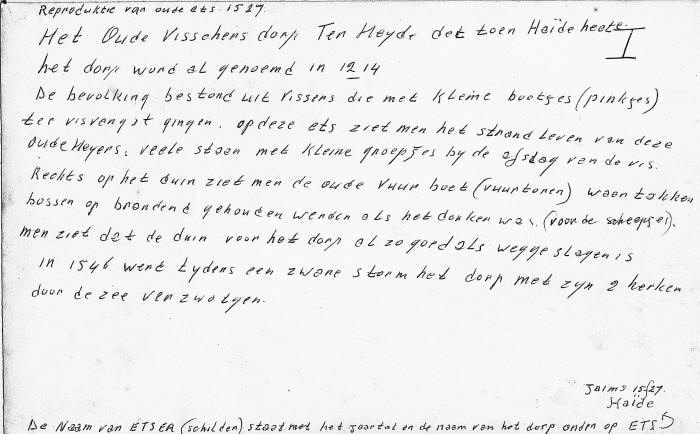 Reproduktie van oude ets. 1527.
Het Oude Visschers dorp Ter Heyde det toen Haïde heete.
I
het dorp word al genoemd in 1214
De bevolking bestond uit vissers die met kleine bootjes (pinkjes)
ter visvengst gingen. op deze ets ziet men het strand leven van deze
oude Heyers, veele staan met kleine groepjes by de afslag van de vis.
Rechts op het duin ziet men de oude vuur boet (vuurtoren) waer takken
bossen op brandend gehouden werden als het donker was. (voor de scheepjes).
men ziet dat de duin voor het dorp al zo goed als weggeslagen is
in 1546 werd tydens een zware storm het dorp met zyn 2 kerken
door de zee verzwolgen.
1527.
Haïde
De Naam van ETSER (schilder) staat met het jaartal en de naam van het dorp onder op ETS